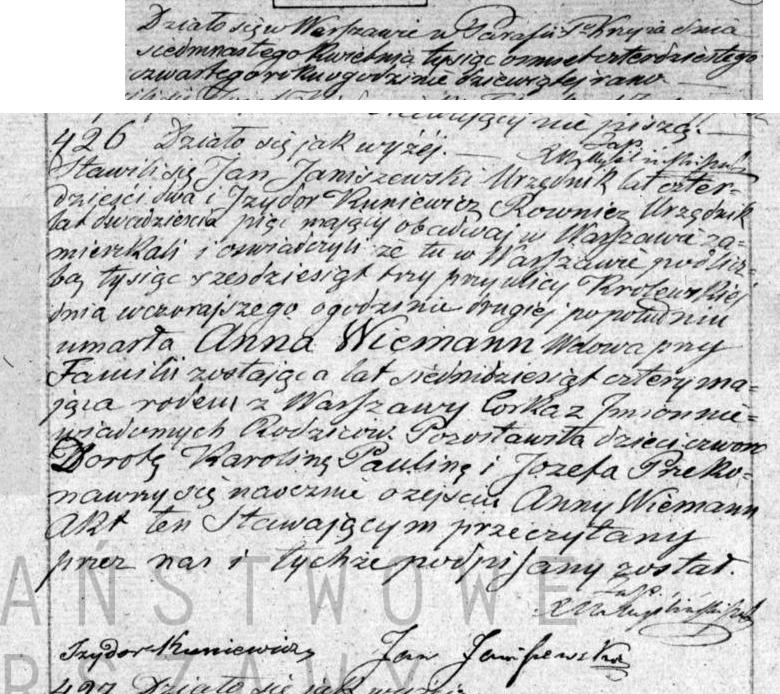 Działo się w Warszawie w Parafii Sgo Krzyża dnia
siedmnastego Kwietnia tysiąc osmset czterdziestego
czwartego roku o godzinie dziewiątej rano
nie piszą.
426 Działo się jak wyżéj.
Stawili się Jan Janiszewski Urzędnik lat czter=
dzieści dwa i Izydor Kuniewicz Rownież Urzędnik
lat dwadzieścia pięć mający obadwaj w Warszawie za=
mieszkali i oswiadczyli że tu w Warszawie pod licz=
bą tysiąc szesdziesiąt trzy przy ulicy Krolewskiej
dnia wczorajszego o godzinie drugiej po południu
umarła Anna Wiemann Wdowa przy
Familii zostająca lat siedmdziesiąt cztery ma=
jąca rodem z Warszawy Corka z Imion nie=
wiadomych Rodzicow. Pozostawiła dzieci czworo
Dorotę Karolinę Paulinę i Jozefa Przeko=
nawszy się naocznie o zejściu Anny Wiemann
Akt ten Stawającym przeczytany
przez nas i tychże podpisany został.
Izydor Kuniewicz Jan Janiszewski
427 Działo się jak wyżéj
AŃSTWOWE
RSZAWY